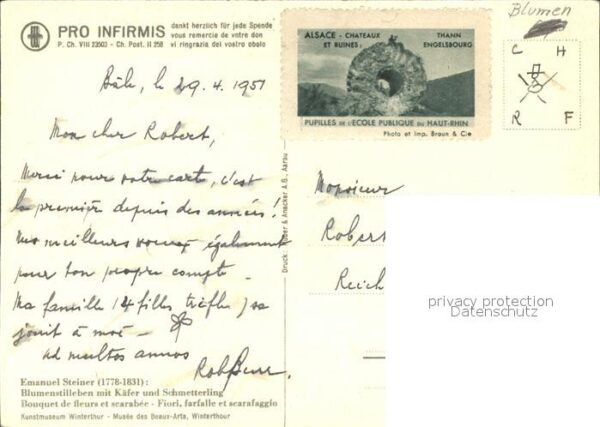 PRO INFIRMIS
P. Ch. VIII 23503 - Ch. Post. II 258
denkt herzlich für jede Spende
vous remercie de votre don
vi ringrazia del vostro obolo
Bâle, le 29.4.1951
Mon cher Robert,
Merci pour votre carte, c'est
la première depuis des années!
Mes meilleurs voeux également
pour ton propre compte
Ma famille (4 filles trèfle) se
joint à moi -
ad multos annos
Emanuel Steiner (1778-1831):
Blumenstilleben mit Käfer und Schmetterling
Bouquet de fleurs et scarabée - Fiori, farfalle et scarafaggio
Kunstmuseum Winterthur - Musée des Beaux-Arts, Winterthour
& Anacker A.G., Aarau
ALSACE - CHATEAUX ET RUINES:
THANN ENGELSBOURG
PUPILLES DE L'ECOLE PUBLIQUE DU HAUT-RHIN
Photo et Imp. Braun & Cie
Blumen
C H
R F
Monsieur
Robert
Reich
privacy protection
Datenschutz